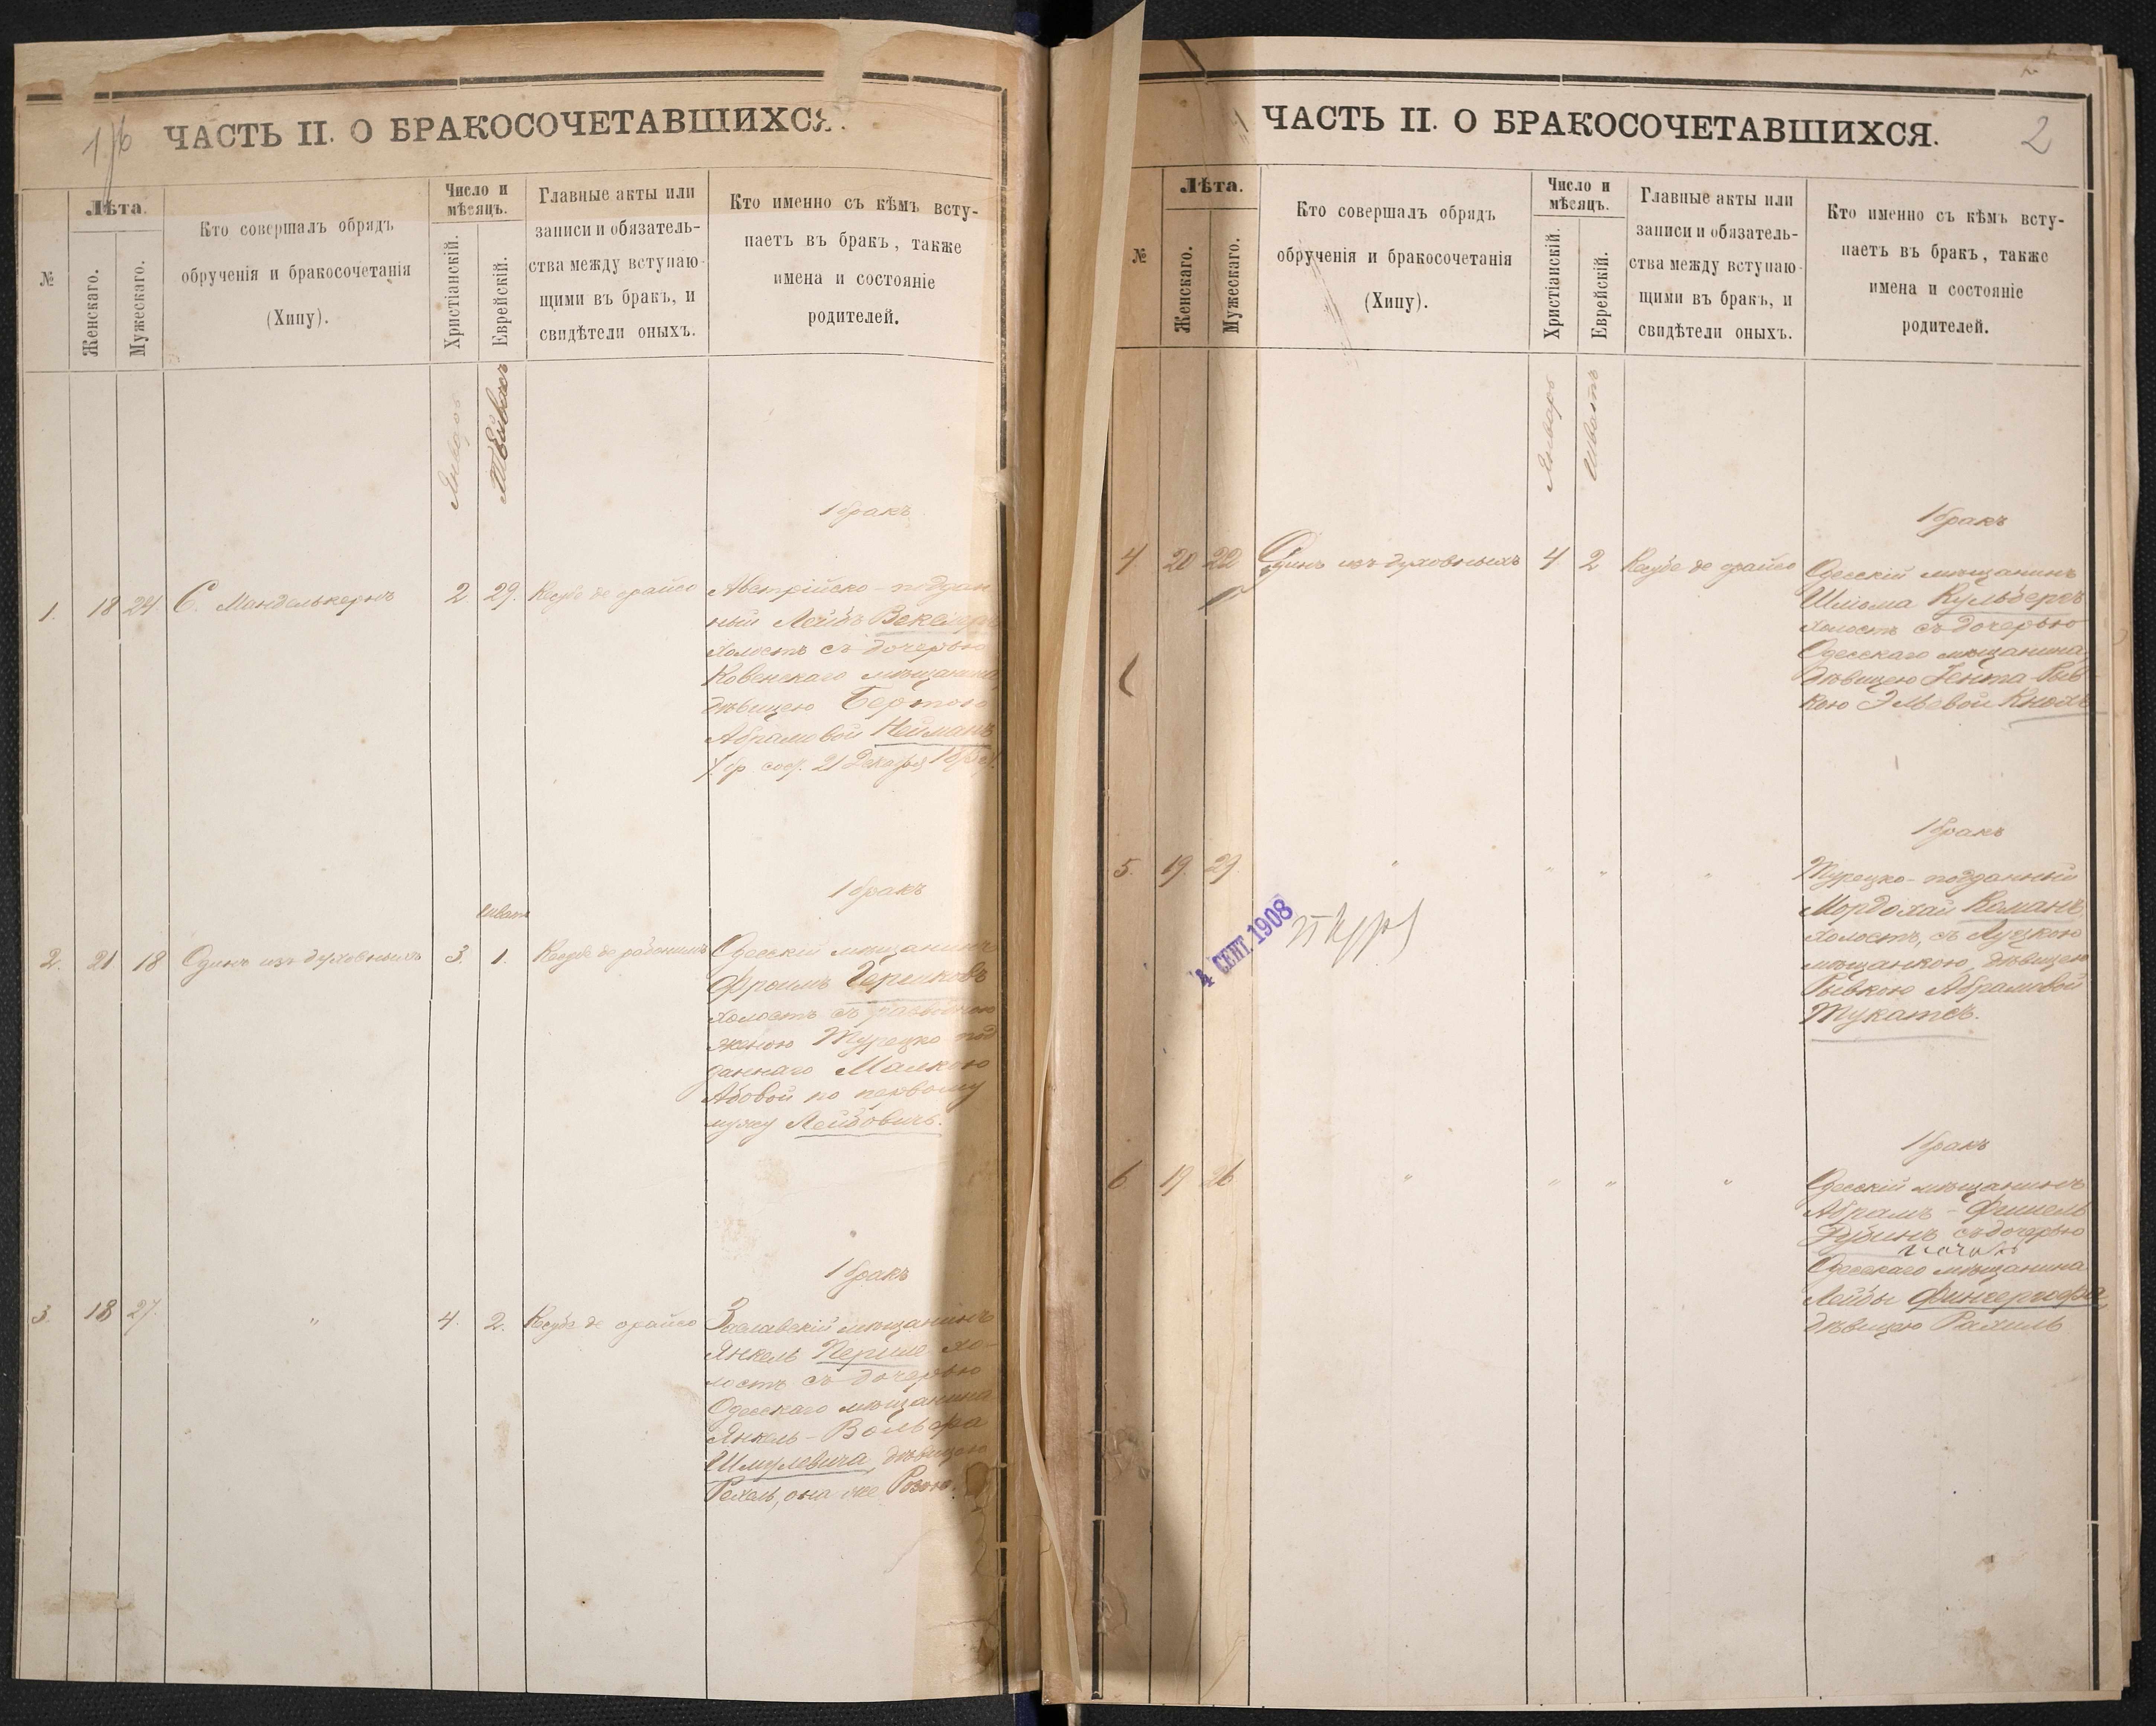 1/6
ЧАСТЬ II. О БРАКОСОЧЕТАВШИХСЯ.
№
Лѣта.
Женскаго.
Мужескаго.
Кто совершалъ обрядъ
обрученія и бракосочетанія
(Хипу).
Число и
мѣсяцъ.
Христіанскій.
Еврейскій.
Главные акты или
записи и обязатель-
ства между вступаю-
щими въ бракъ, и
свидѣтели оныхъ.
Кто именно съ кѣмъ всту-
паетъ въ бракъ, также
имена и состояніе
родителей.
Январь
1 бракъ
1. 18 24. С. Манделькернъ 2. 29. Ксубе де орайсо
Австрійско-поддан
ный Лейбъ
холостъ съ дочерью
Ковенскаго мѣщанина,
дѣвицею Бертою
Абрамовой Нейманъ
21 Декабря
1 бракъ
Шватъ
2. 21 18 Одинъ изъ духовныхъ 3. 1. Ксубе де
Одесскій мѣщанинъ
Фроимъ
холостъ съ разводною
женою Турецко под
даннаго Малкою
Абовой по первому
мужу Лейбовичъ.
1 бракъ
3. 18 27. " 4. 2. Ксубе де орайсо
Заславскій мѣщанинъ
Янкель хо-
лостъ съ дочерью
Одесскаго мѣщанина
Янкель-Вольфа
Шмулевича, дѣвицею
Рехель, она же Розою.
ЧАСТЬ II. О БРАКОСОЧЕТАВШИХСЯ.
2
№
Лѣта.
Женскаго.
Мужескаго.
Кто совершалъ обрядъ
обрученія и бракосочетанія
(Хипу).
Число и
мѣсяцъ.
Христіанскій.
Еврейскій.
Главные акты или
записи и обязатель-
ства между вступаю-
щими въ бракъ, и
свидѣтели оныхъ.
Кто именно съ кѣмъ всту-
паетъ въ бракъ, также
имена и состояніе
родителей.
Январь
Шватъ
1 бракъ
4. 20 22 Одинъ изъ духовныхъ 4 2 Ксубе де орайсо
Одесскій мѣщанинъ
Шліома Кульберъ
холостъ съ дочерью
Одесскаго мѣщанина,
дѣвицею Гента-Рыв-
кою Эльевой
1 бракъ
5. 19. 29. " " " "
Турецко-подданный
Мордохай Команъ,
холостъ, съ Луцкою
мѣщанкою, дѣвицею
Рывкою Абрамовой
Тукатсъ.
4 СЕНТ. 1908
1 бракъ
6 19 26 " " " "
Одесскій мѣщанинъ
Абрамъ-Фишель
Рубинъ съ дочерью
Одесскаго мѣщанина
Лейбы Фингергофа,
дѣвицею Рахиль